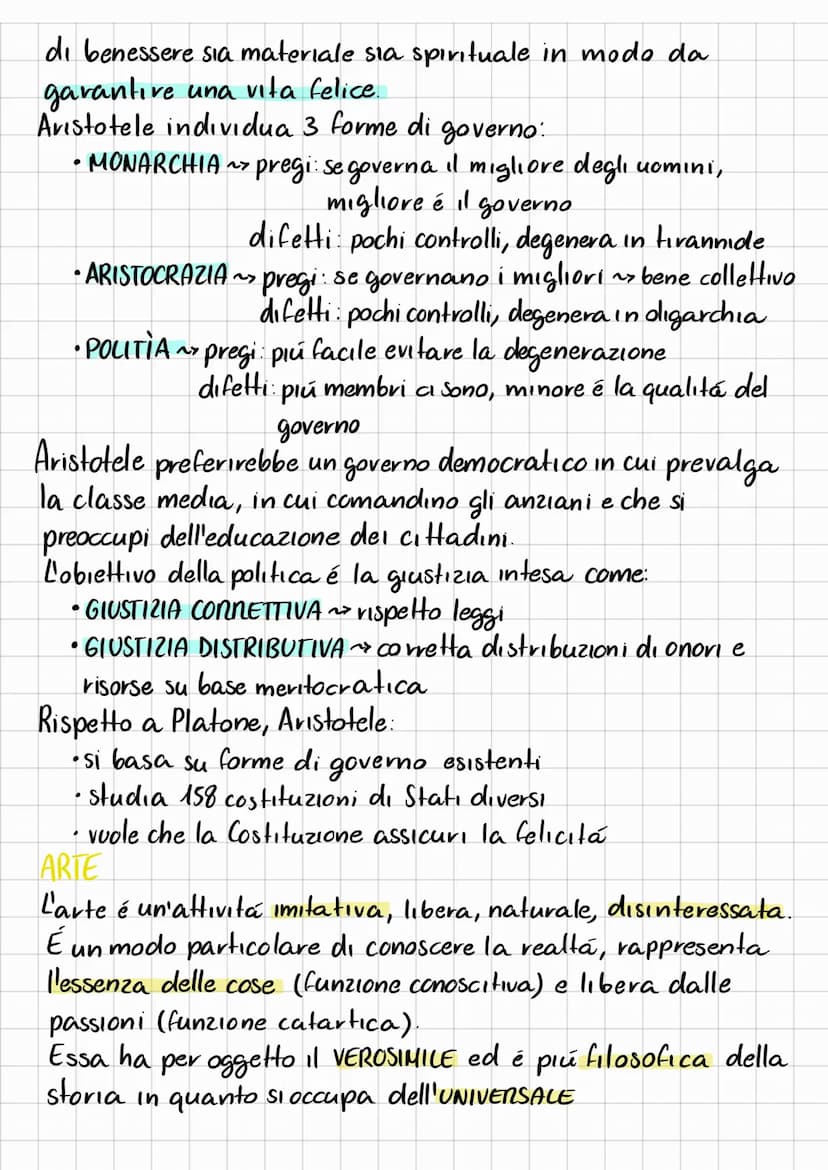 di benessere sia materiale sia spirituale in modo da
garantire una vita felice.
Aristotele individua 3 forme di governo:
• MONARCHIA ~> pregi: se governa il migliore degli uomini,
migliore é il governo
difetti: pochi controlli, degenera in tirannide
• ARISTOCRAZIA ~> pregi: se governano i migliori ~> bene collettivo
difetti: pochi controlli, degenera in oligarchia
• POLITÌA ~> pregi: piú facile evitare la degenerazione
difetti: piú membri ci sono, minore é la qualitá del
governo
Aristotele preferirebbe un governo democratico in cui prevalga
la classe media, in cui comandino gli anziani e che si
preoccupi dell'educazione dei cittadini.
L'obiettivo della politica é la giustizia intesa come:
• GIUSTIZIA CORRETTIVA ~> rispetto leggi
• GIUSTIZIA DISTRIBUTIVA ~> corretta distribuzioni di onori e
risorse su base meritocratica
Rispetto a Platone, Aristotele:
• si basa su forme di governo esistenti
• studia 158 costituzioni di Stati diversi
• vuole che la Costituzione assicuri la felicitá
ARTE
L'arte é un'attivitá imitativa, libera, naturale, disinteressata.
É un modo particolare di conoscere la realtá, rappresenta
l'essenza delle cose (funzione conoscitiva) e libera dalle
passioni (funzione catartica).
Essa ha per oggetto il VEROSIMILE ed é piú filosofica della
storia in quanto si occupa dell'UNIVERSALE